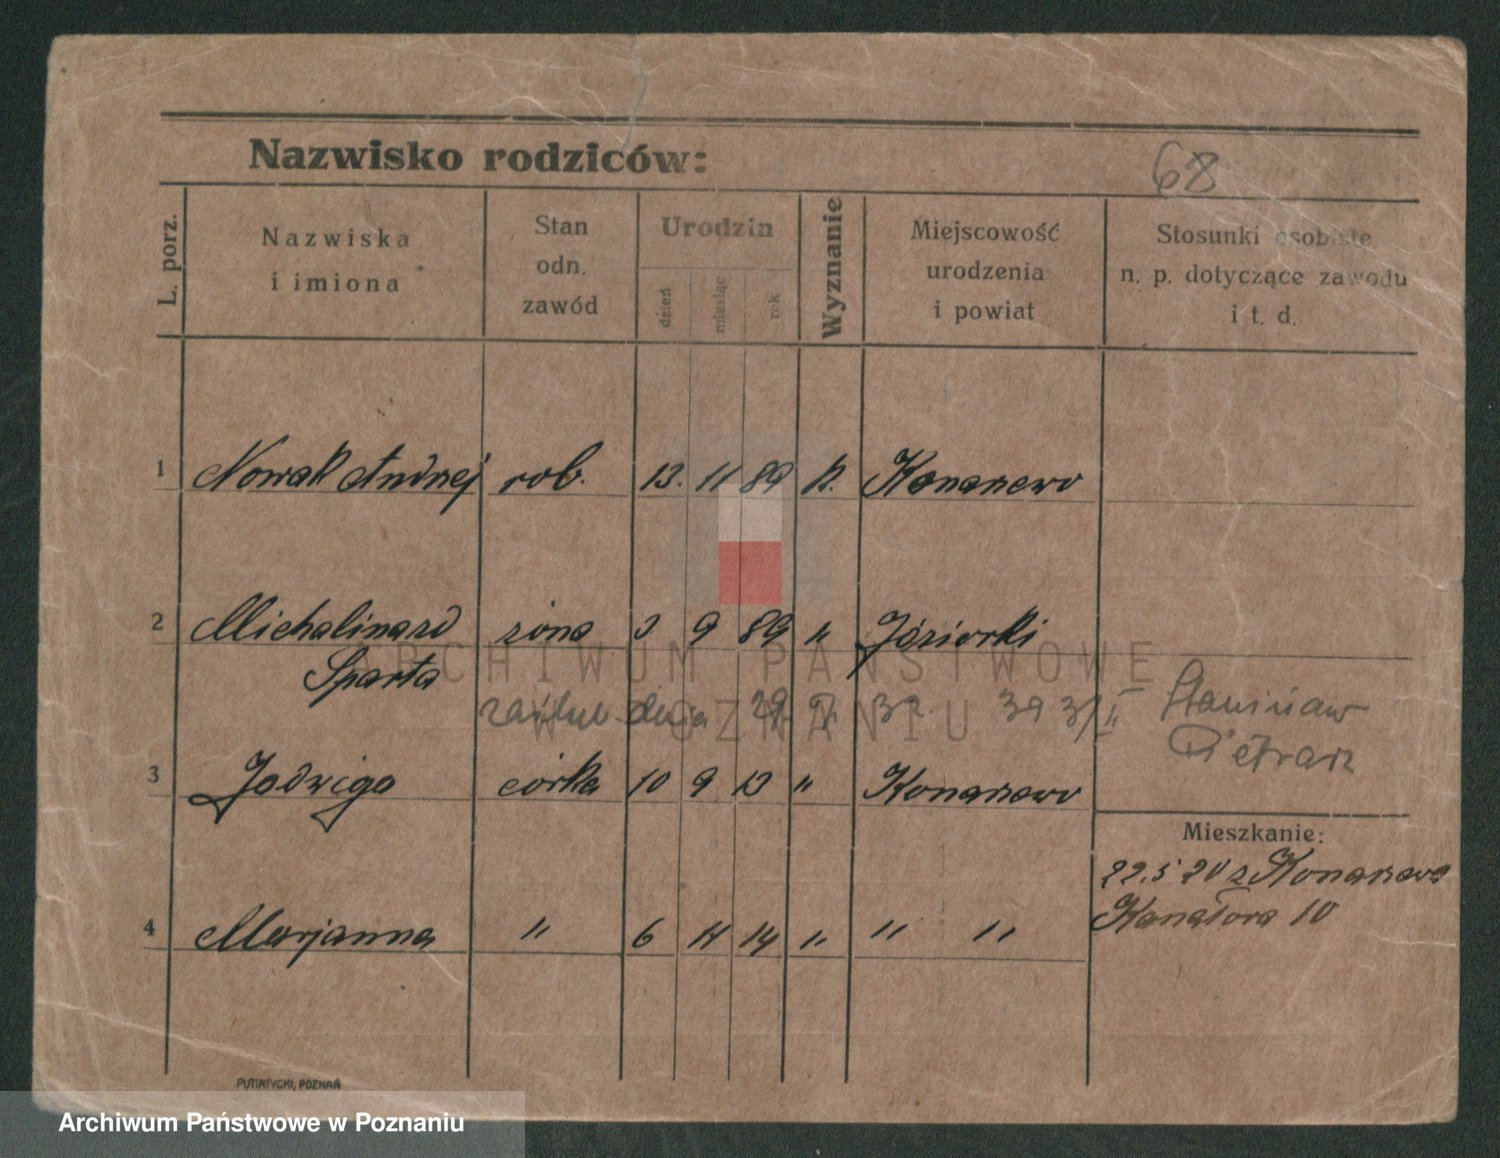 Nazwisko rodziców:
68
L. porz.
Nazwiska
i imiona
Stan
odn.
zawód
Urodzin
dzień
miesiąc
rok
Wyznanie
Miejscowość
urodzenia
i powiat
Stosunki osobiste
n. p. dotyczące zawodu
i t. d.
1 Nowak Andrzej rob. 13. 11 89 k. Konarzewo
2 Michalina zd żona 9 89 " Józiorki
Sparta
ARCHIWUM PAŃSTWOWE
W POZNANIU
dnia 32. Stanisław
Pietrarz
3 Jadwiga córka 10 9 13 " Konarzewo
Mieszkanie:
22.5 20 z Konarzewa
Kanałowa 10
4 Marjanna " 6 11 14 " " "
PUTIATYCKI, POZNAŃ
Archiwum Państwowe w Poznaniu